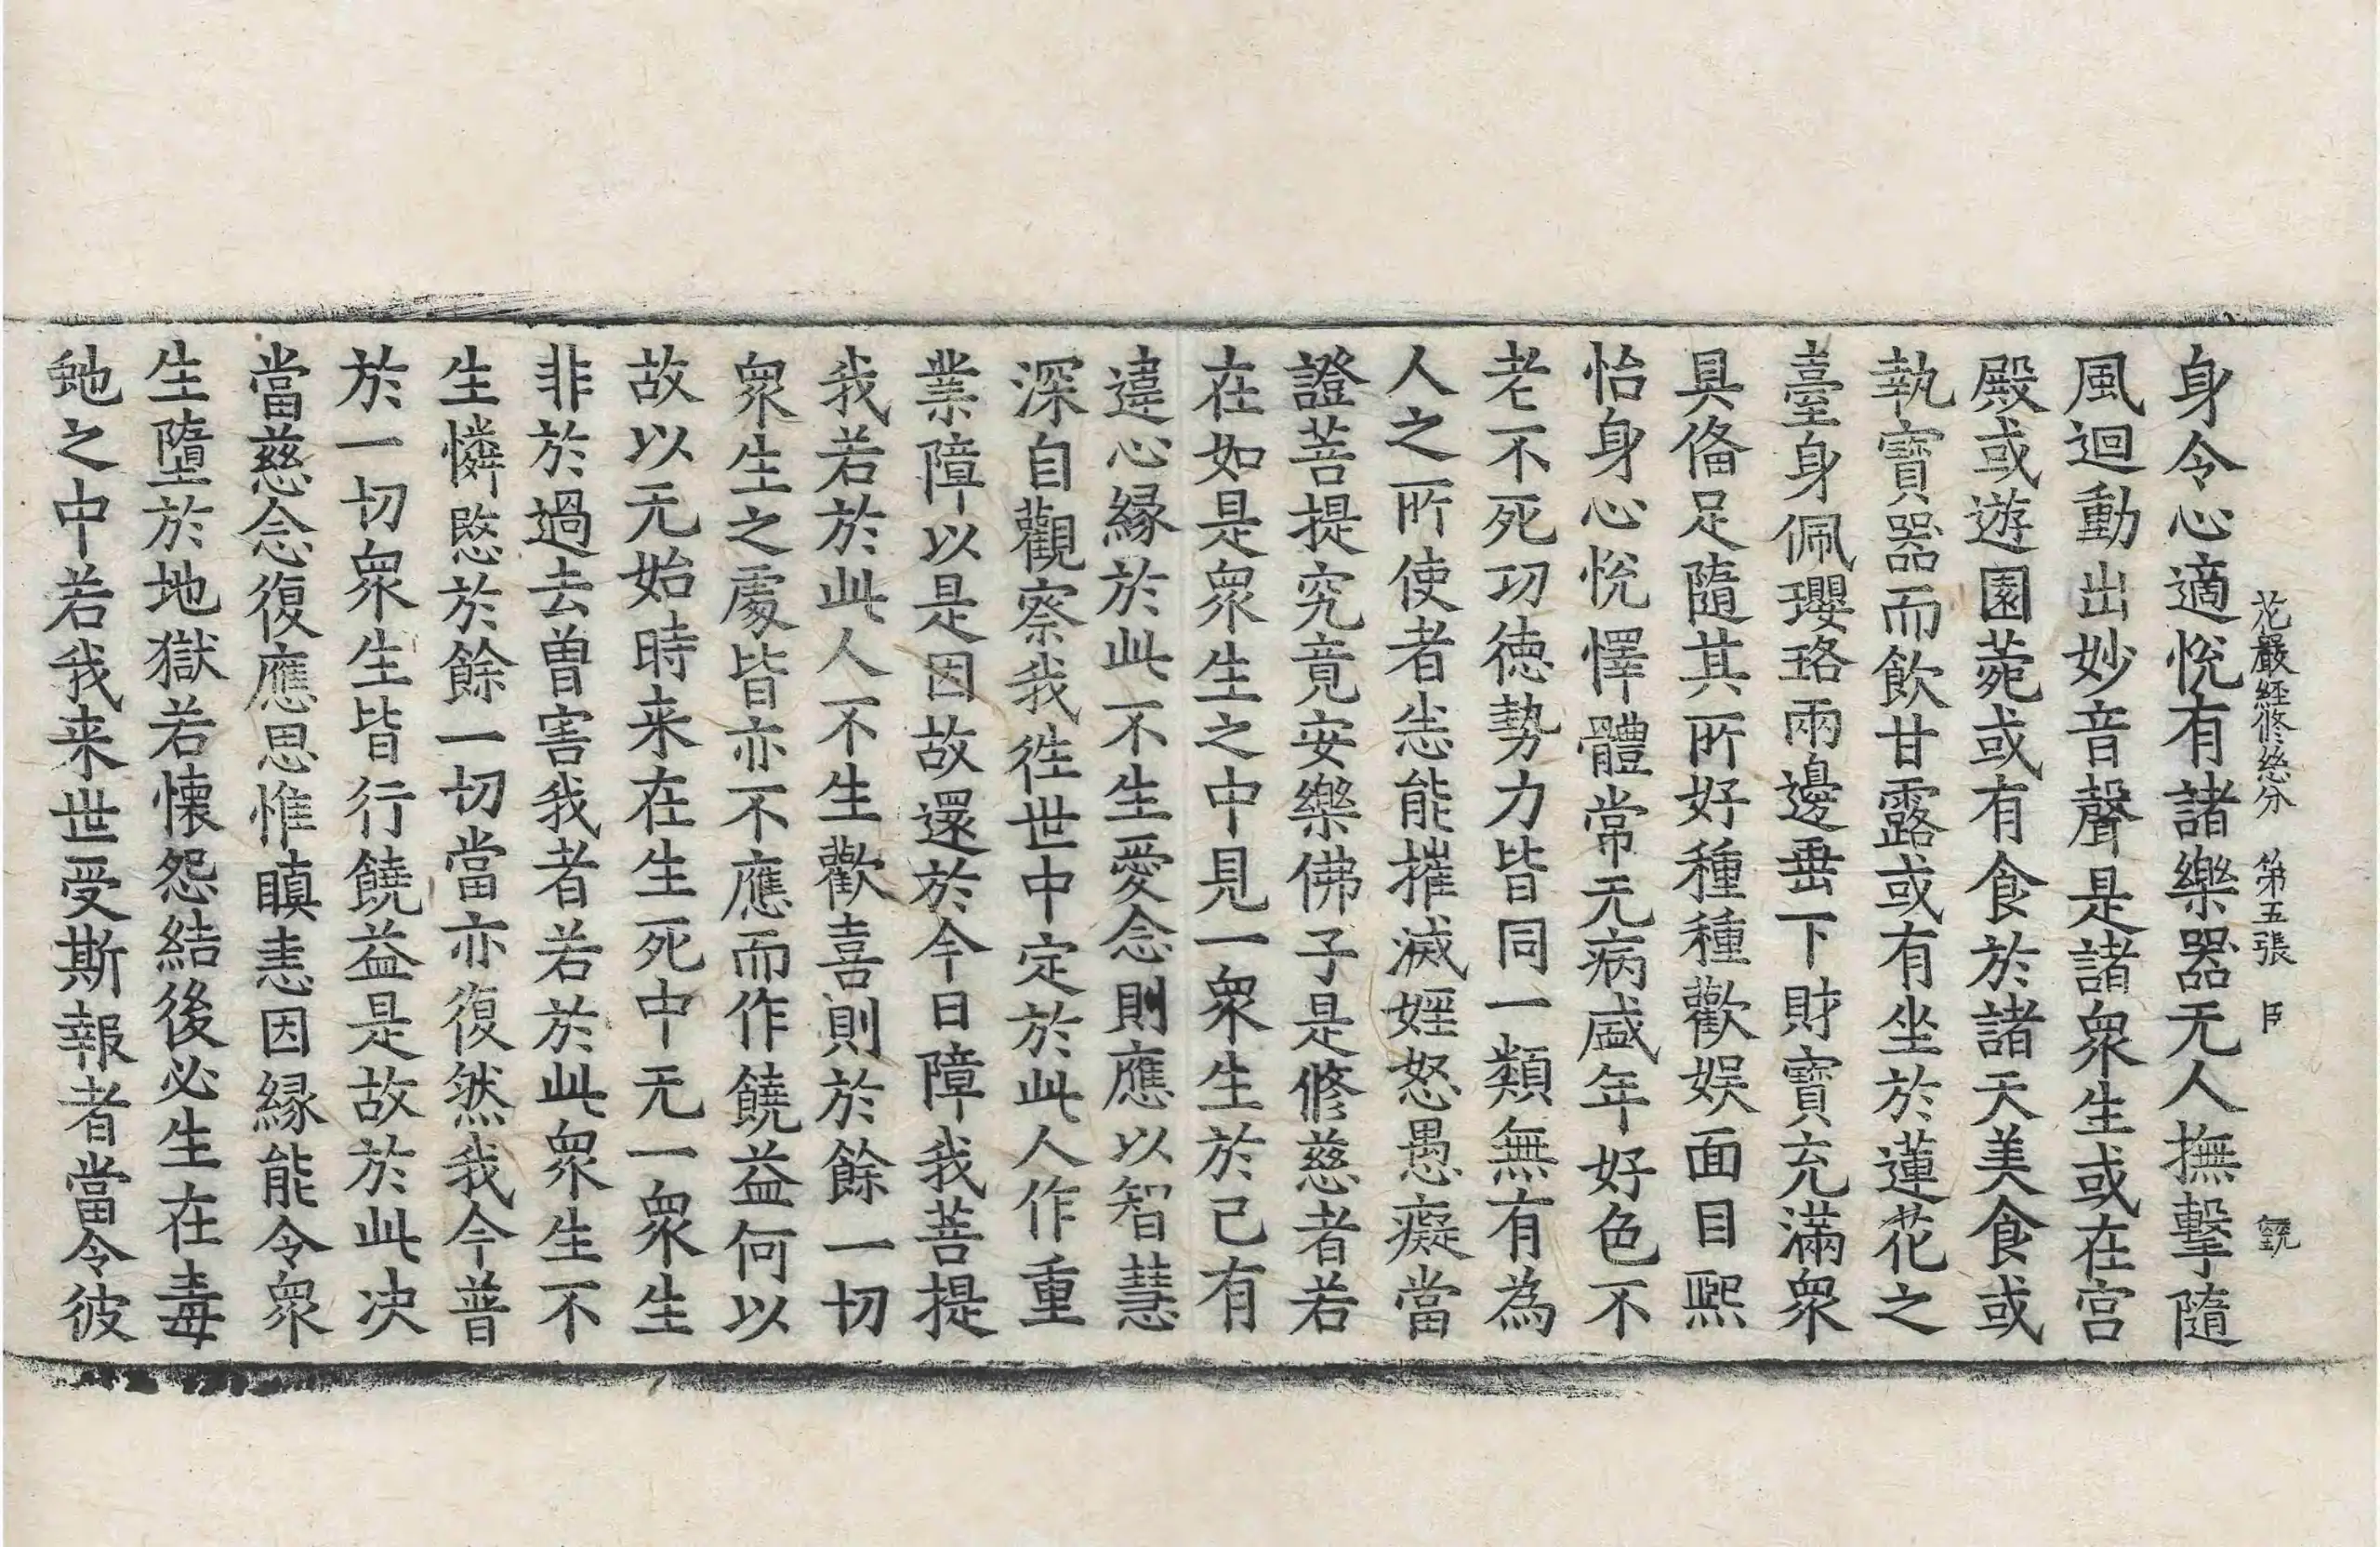 花嚴經修慈分 第五張 臣
身令心適悅有諸樂器无人撫擊隨
風迴動出妙音聲是諸衆生或在宮
殿或遊園菀或有食於諸天美食或
執寶器而飲甘露或有坐於蓮花之
臺身佩瓔珞兩邊垂下財寶充滿衆
具俻足隨其所好種種歡娱面目熙
怡身心悅懌體常无病盛年好色不
老不死功德勢力皆同一類無有為
人之所使者恙能摧滅婬怒愚癡當
證菩提究竟安樂佛子是修慈者若
在如是衆生之中見一衆生於己有
違心縁於此不生愛念則應以智慧
深自觀察我徃世中定於此人作重
業障以是因故還於今日障我菩提
我若於此人不生歡喜則於餘一切
衆生之處皆亦不應而作饒益何以
故以无始時来在生死中无一衆生
非於過去曽害我者若於此衆生不
生憐愍於餘一切當亦復然我今普
於一切衆生皆行饒益是故於此决
當慈念復應思惟瞋恚因縁能令衆
生墮於地獄若懐怨結後必生在毒
虵之中若我来世受斯報者當令彼